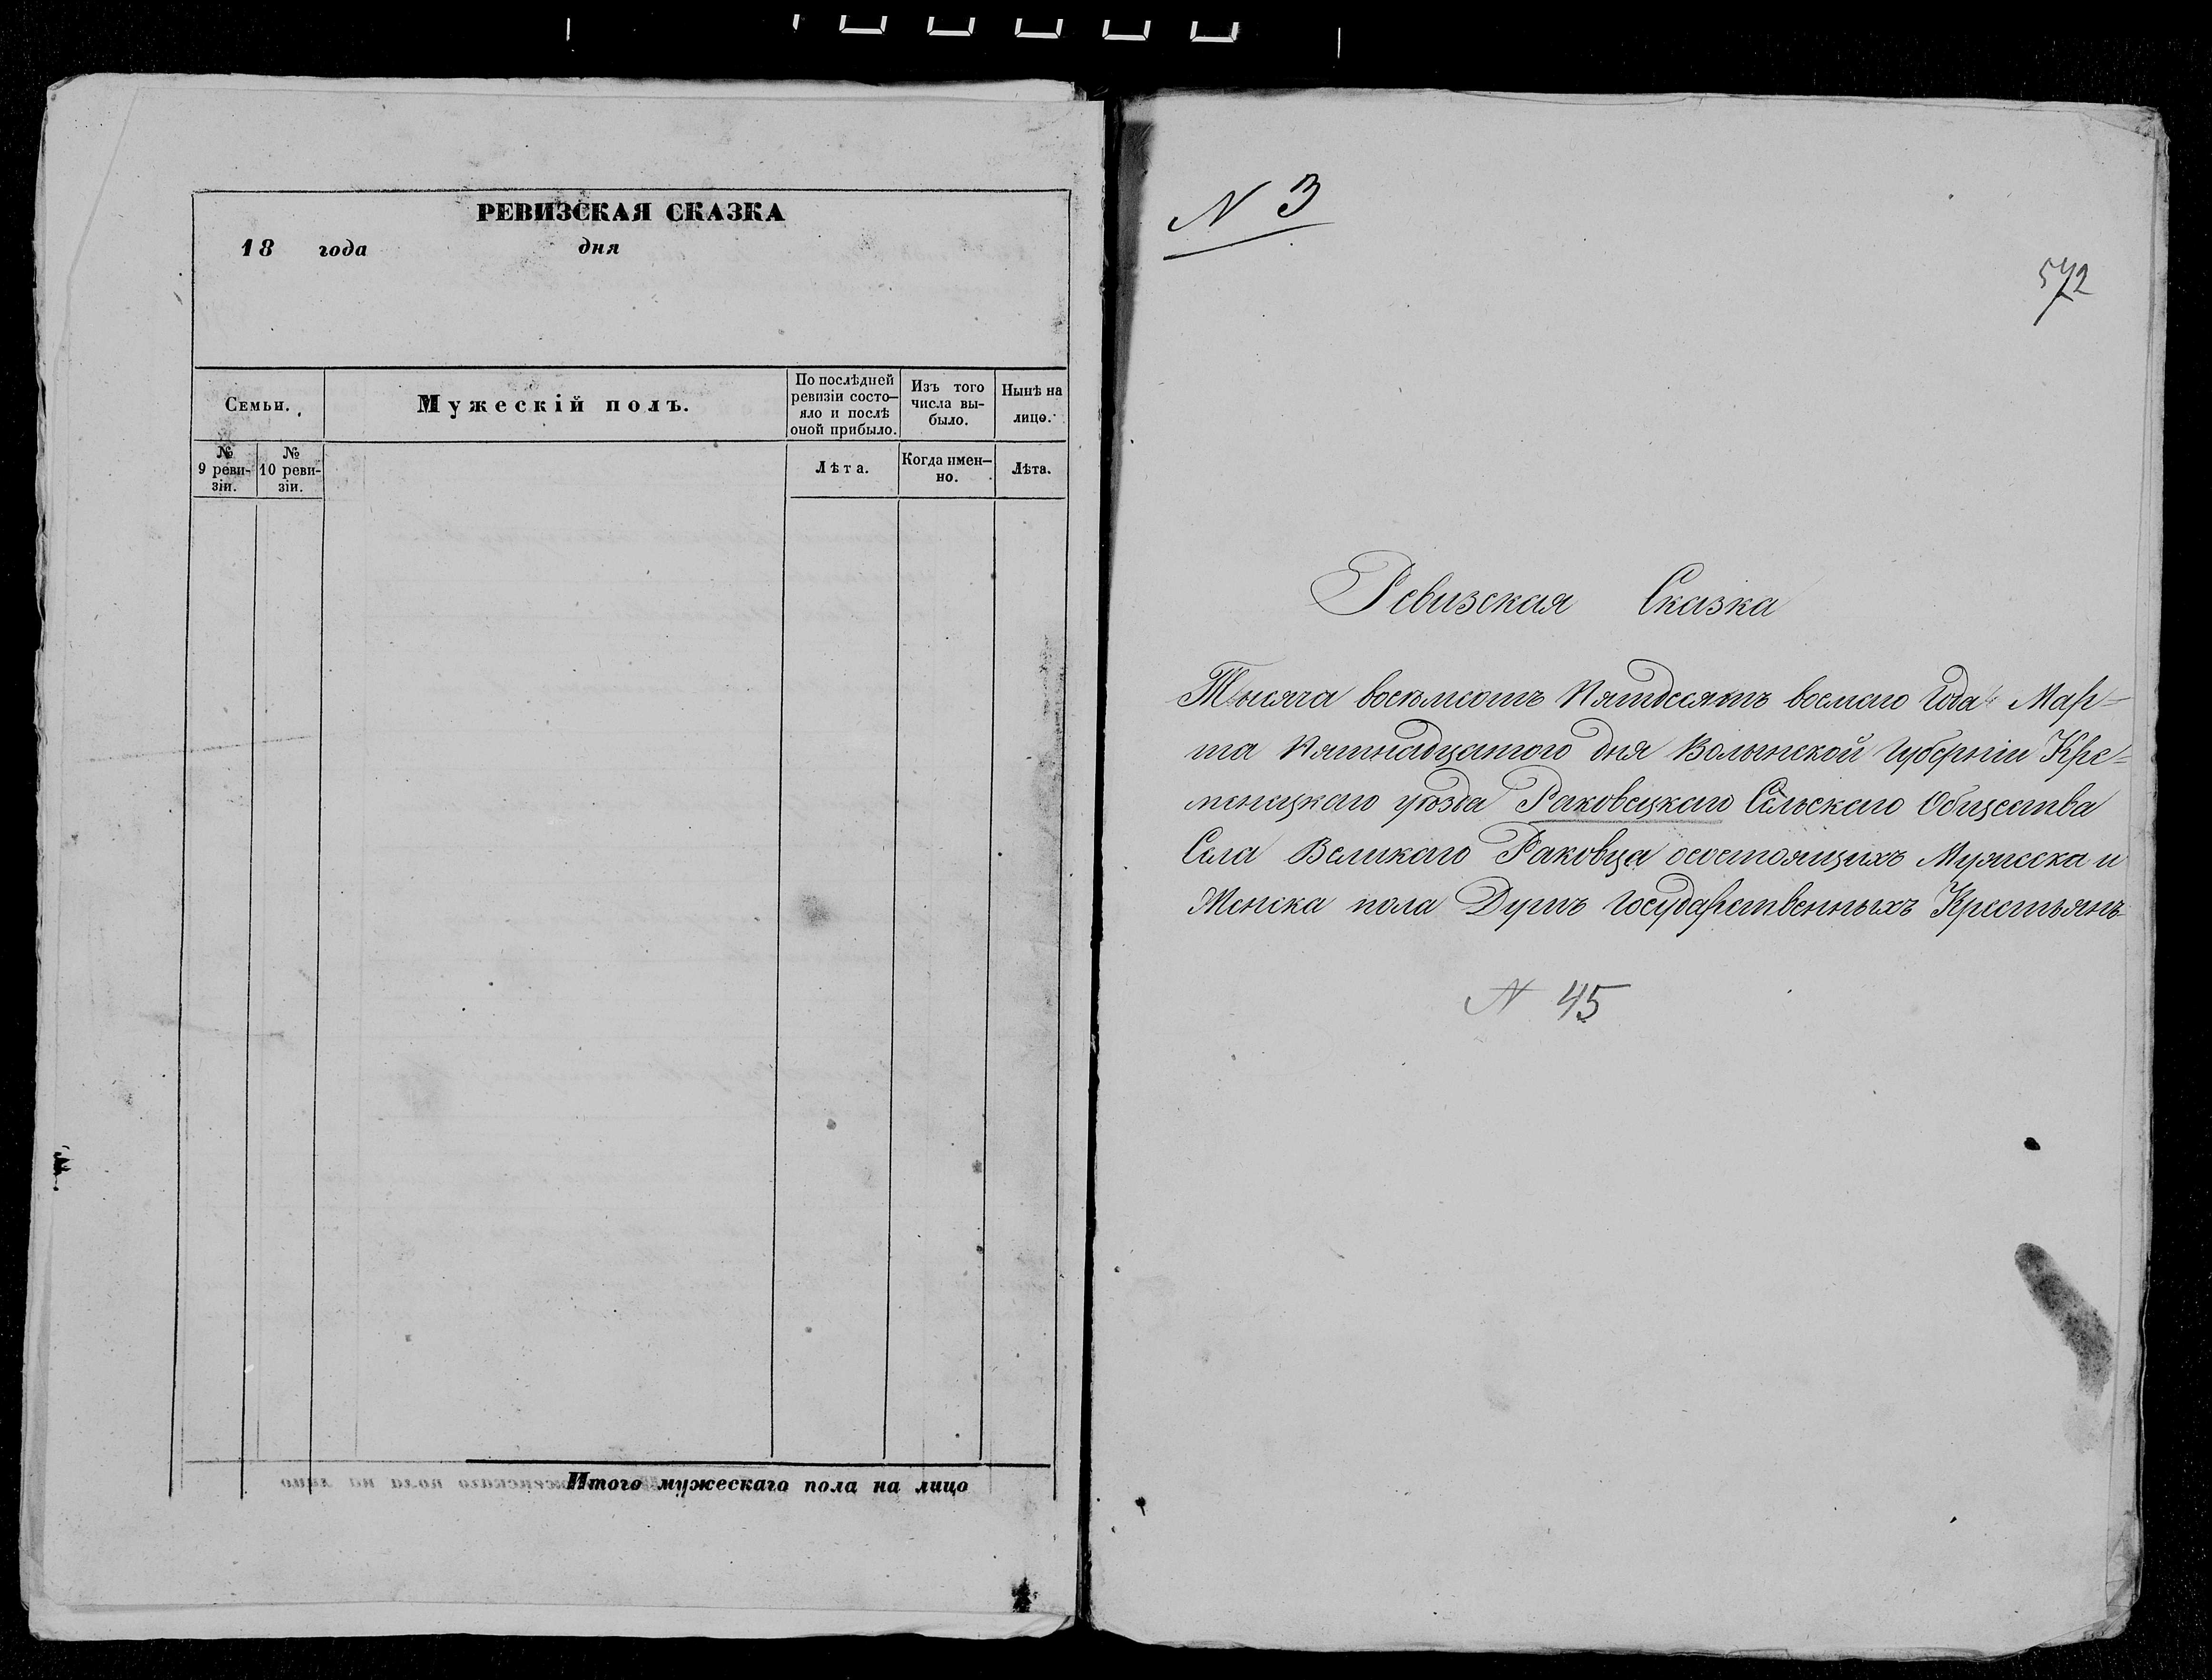 РЕВИЗСКАЯ СКАЗКА
18 года дня
Семьи.
Мужескій полъ.
По послѣдней
ревизіи состо-
яло и послѣ
оной прибыло.
Изъ того
числа вы-
было.
Нынѣ на
лицо.
№
9 реви-
зіи.
№
10 реви-
зіи.
Лѣта.
Когда имен-
но.
Лѣта.
Итого мужескаго пола на лицо
N 3
572
Ревизская Сказка
Тысяча восемсотъ Пятдесятъ восмаго Года Мар-
та Пятнадцатого дня Волынской Губерніи Кре-
менецкаго уѣзда Раковецкаго Сельскаго Общества
Села Великаго Раковца осостоящихъ Мужеска и
Женска пола Душъ Государственныхъ Крестьянъ
N 45